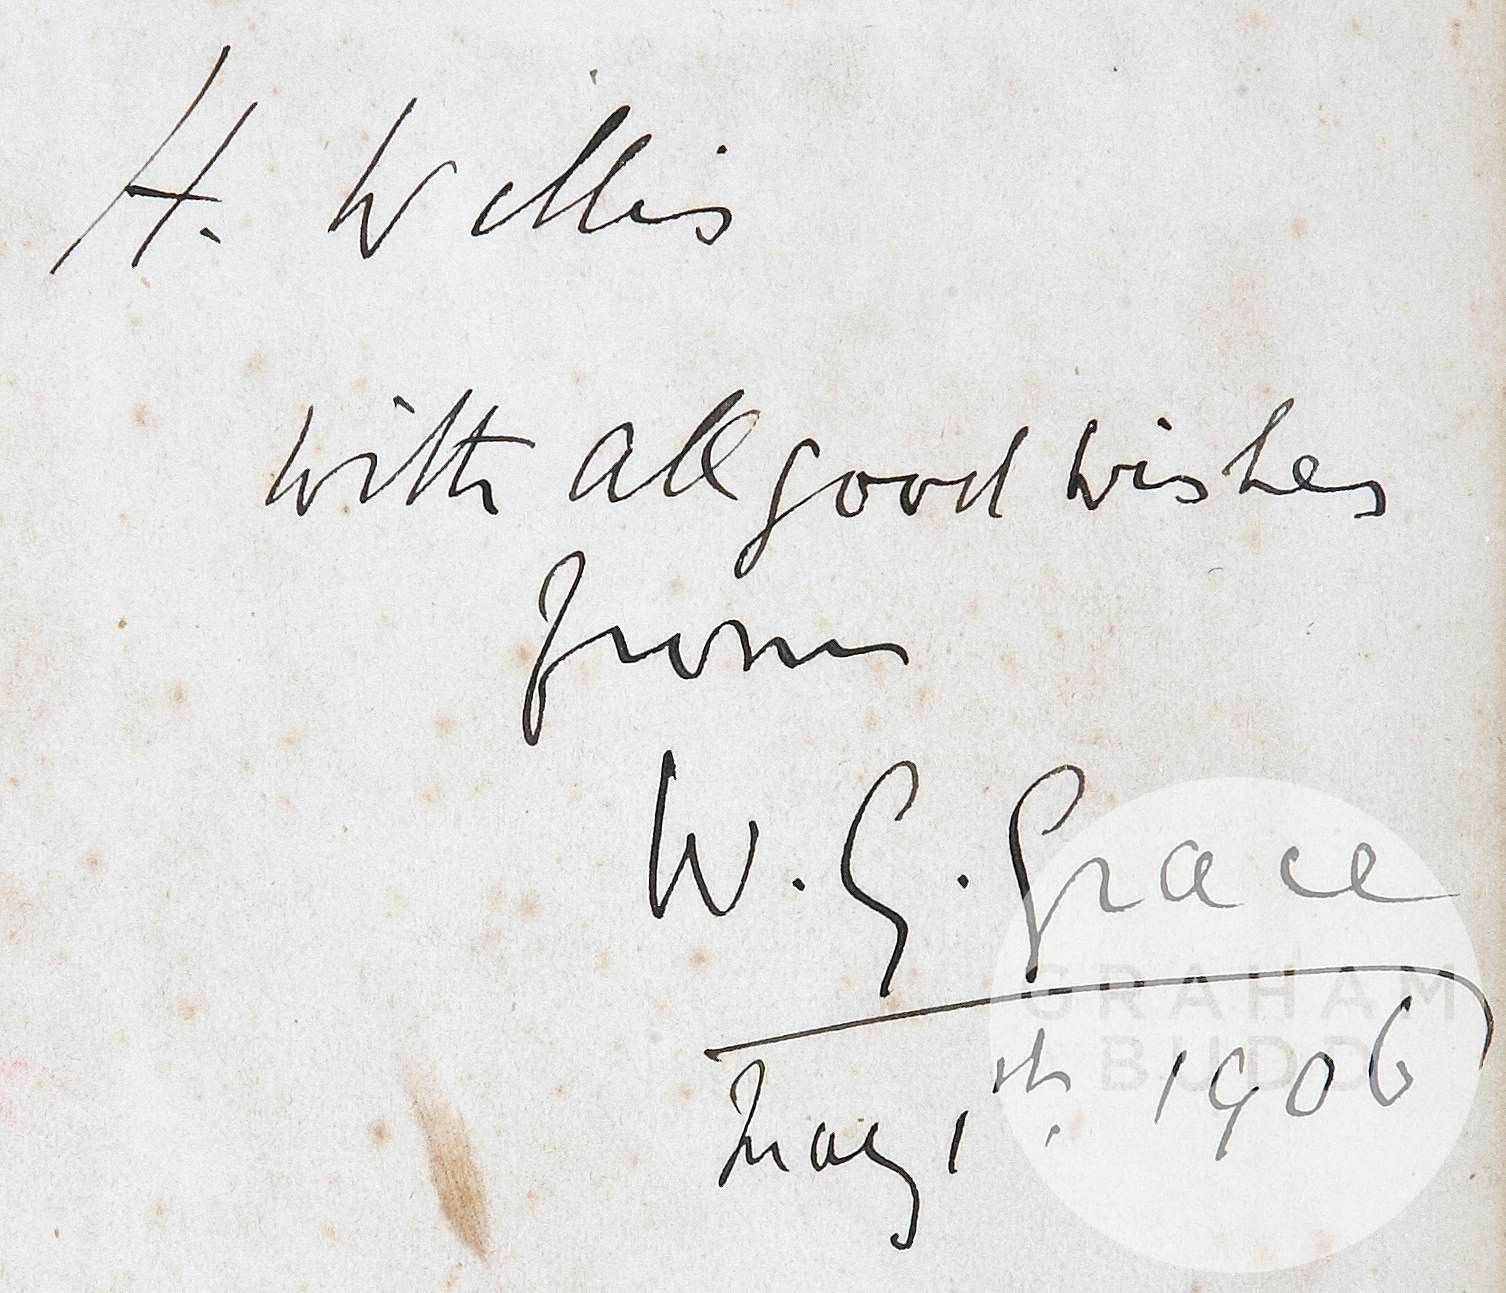 H. Willis
with all good wishes
from
W. G. Grace
May 1st. 1906
GRAHAM
BUDD